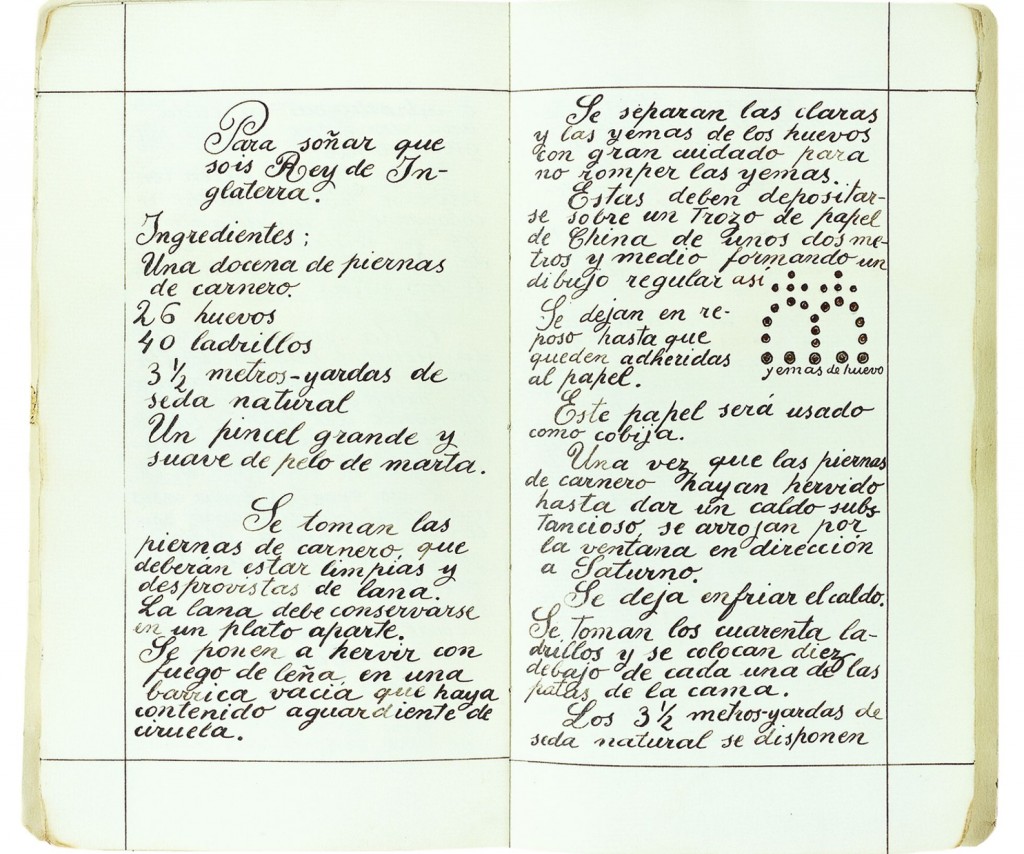 Para soñar que
sois Rey de In-
glaterra.
Ingredientes;
Una docena de piernas
de carnero.
26 huevos
40 ladrillos
3 ½ metros-yardas de
seda natural
Un pincel grande y
suave de pelo de marta.
Se toman las
piernas de carnero, que
deberán estar limpias y
desprovistas de lana.
La lana debe conservarse
en un plato aparte.
Se ponen a hervir con
fuego de leña, en una
barrica vacia que haya
contenido aguardiente de
ciruela.
Se separan las claras
y las yemas de los huevos
con gran cuidado para
no romper las yemas.
Estas deben depositar-
se sobre un trozo de papel
de China de unos dos me-
tros y medio formando un
dibujo regular así
Se dejan en re-
poso hasta que
queden adheridas
al papel.
yemas de huevo
Este papel será usado
como cobija.
Una vez que las piernas
de carnero hayan hervido
hasta dar un caldo subs-
tancioso, se arrojan por
la ventana en dirección
a Saturno.
Se deja enfriar el caldo.
Se toman los cuarenta la-
drillos y se colocan diez
debajo de cada una de las
patas de la cama.
Los 3 ½ metros-yardas de
seda natural se disponen